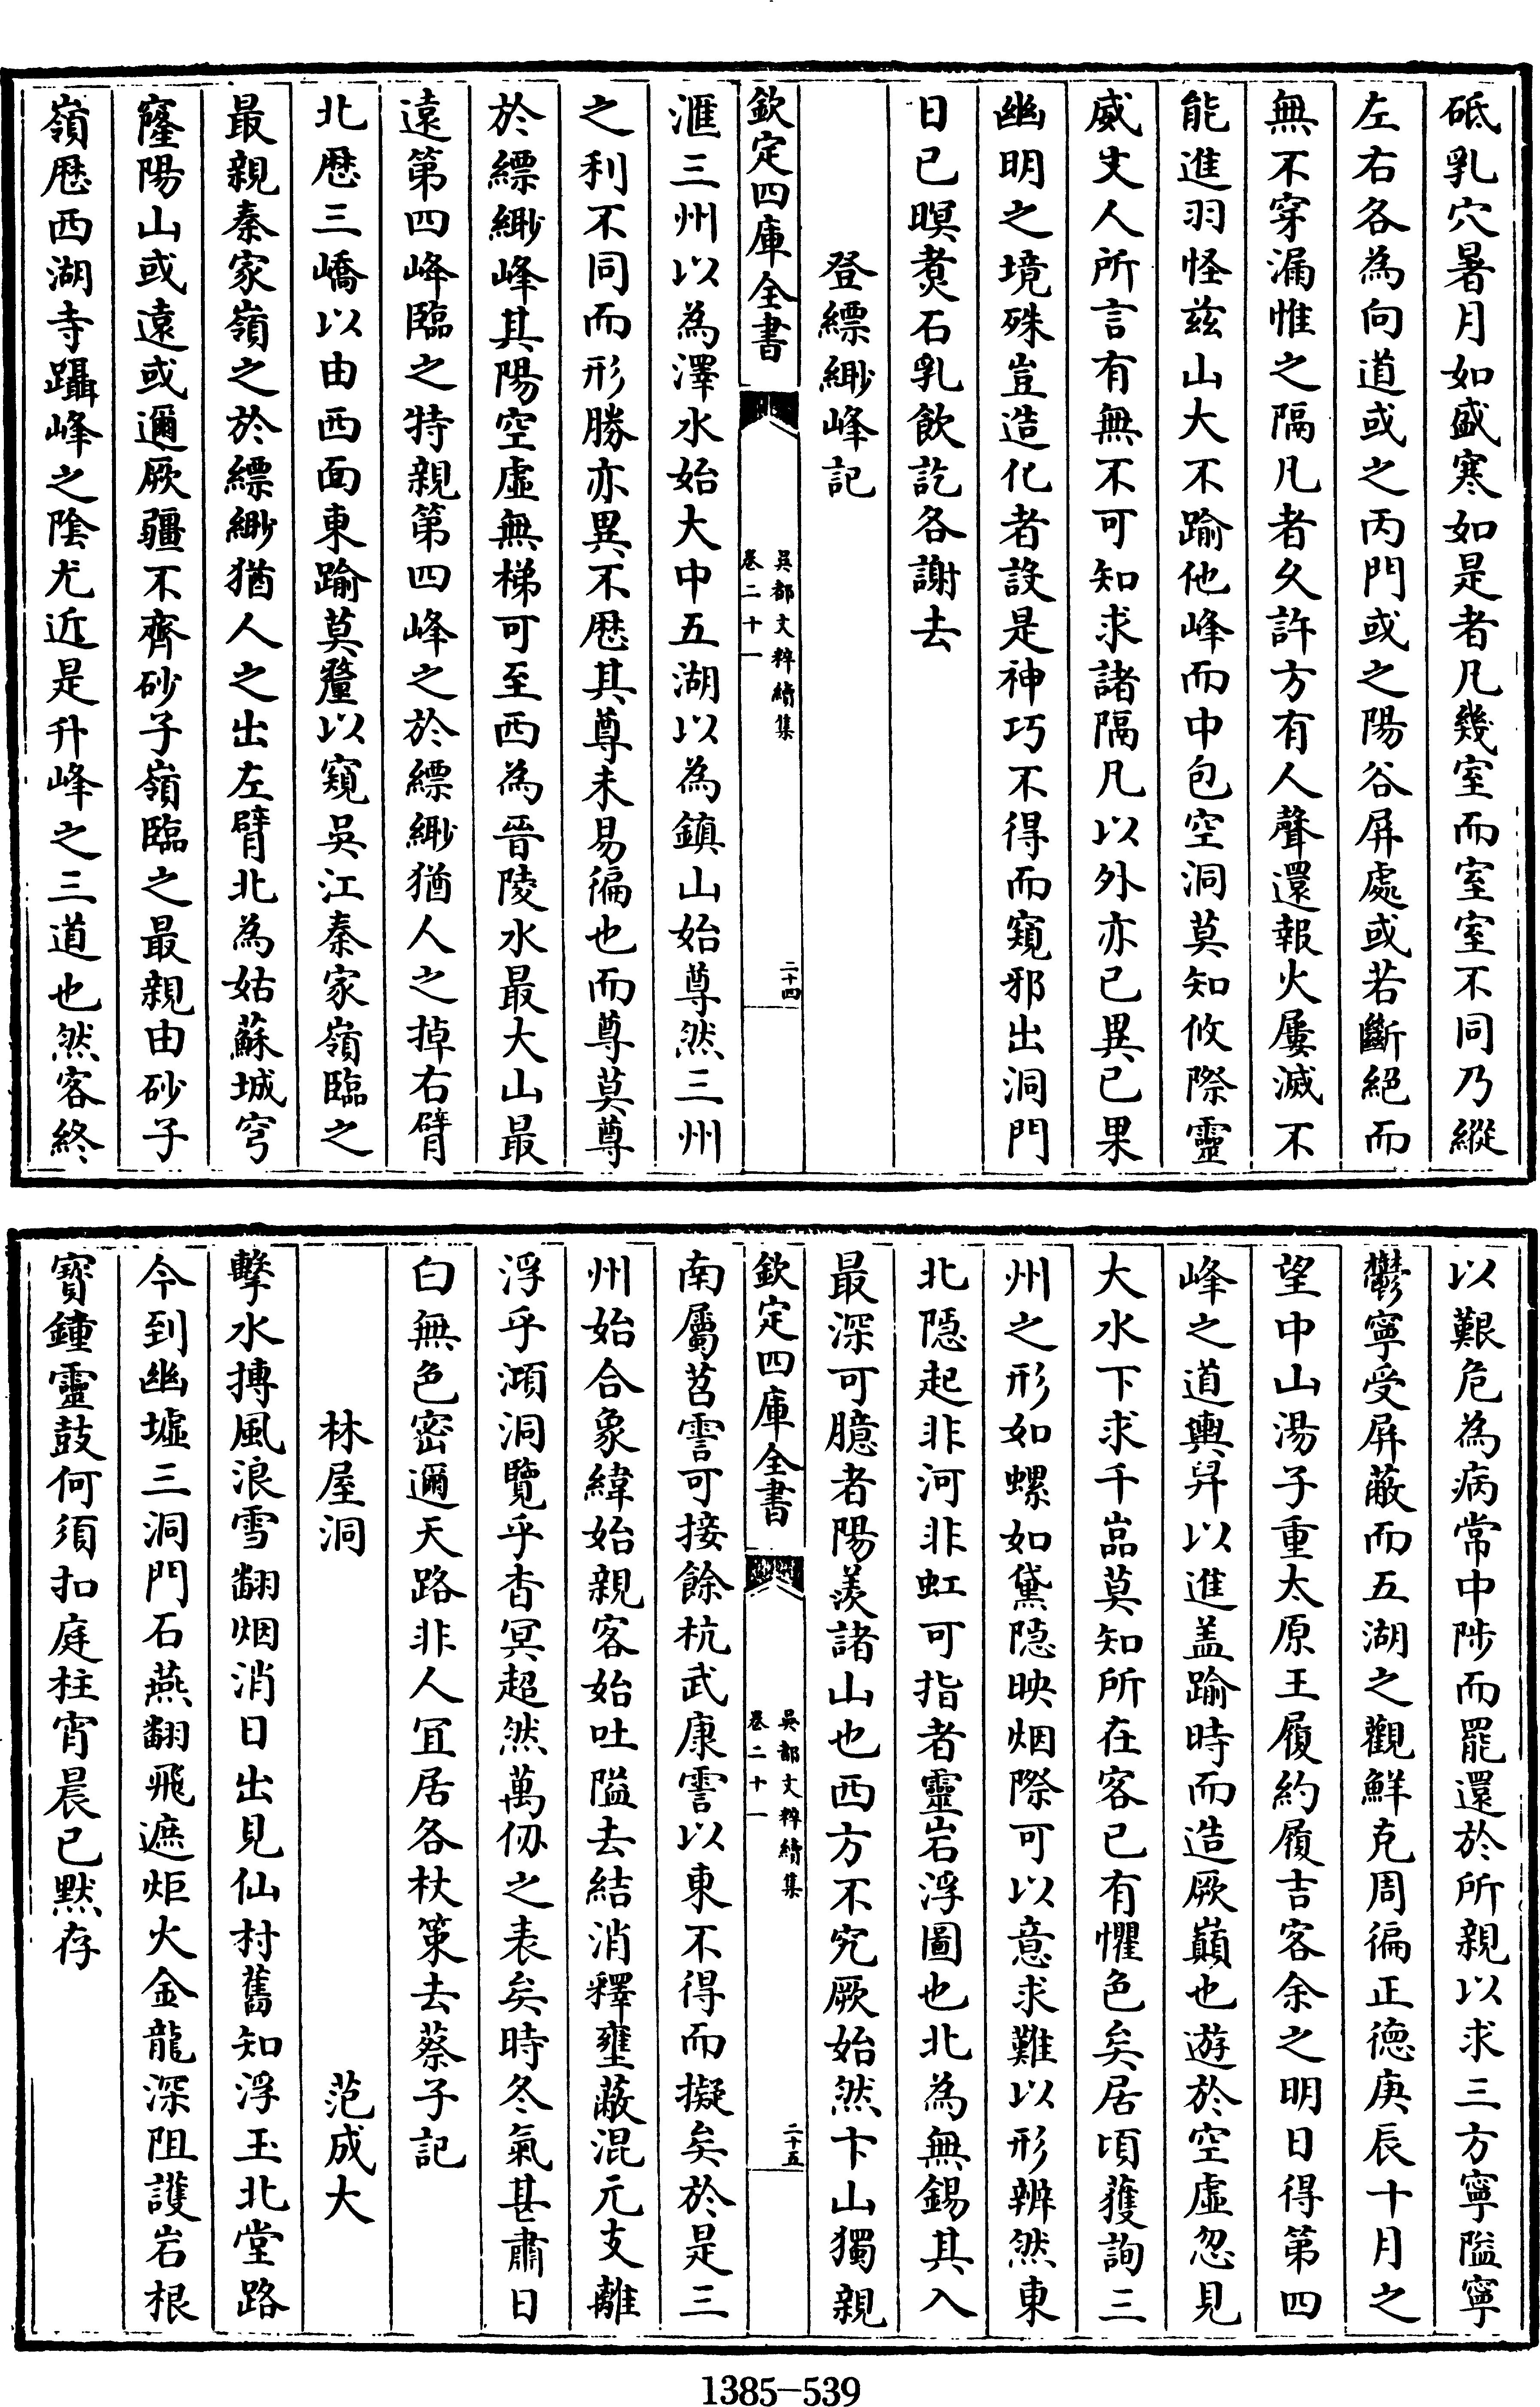 砥乳穴暑月如盛寒如是者凡幾室而室室不同乃縱
左右各為向道或之丙門或之陽谷屏處或若斷絕而
無不穿漏惟之隔凡者久許方有人聲還報火屢滅不
能進羽怪茲山大不踰他峰而中包空洞莫知攸際靈
威丈人所言有無不可知求諸隔凡以外亦已異已果
幽明之境殊豈造化者設是神巧不得而窺邪出洞門
日已暝煑石乳飲訖各謝去
登縹緲峰記
欽定四庫全書
吳都文粹續集
卷二十一
二十四
滙三州以為澤水始大中五湖以為鎮山始尊然三州
之利不同而形勝亦異不厯其尊未易徧也而尊莫尊
於縹緲峰其陽空虛無梯可至西為晉陵水最大山最
遠第四峰臨之特親第四峰之於縹緲猶人之掉右臂
北厯三嶠以由西面東踰莫釐以窺吳江秦家嶺臨之
最親秦家嶺之於縹緲猶人之出左臂北為姑蘇城穹
窿陽山或遠或邇厥疆不齊砂子嶺臨之最親由砂子
嶺厯西湖寺躡峰之陰尤近是升峰之三道也然客終
以艱危為病常中陟而罷還於所親以求三方寧隘寧
鬱寧受屏蔽而五湖之觀鮮克周徧正德庚辰十月之
望中山湯子重太原王履約履吉客余之明日得第四
峰之道輿舁以進盖踰時而造厥巔也遊於空虛忽見
大水下求千嵓莫知所在客已有懼色矣居頃蒦詢三
州之形如螺如黛隠映烟際可以意求難以形辨然東
北隠起非河非虹可指者靈岩浮圖也北為無錫其入
最深可臆者陽羨諸山也西方不究厥始然卞山獨親
欽定四庫全書
吳都文粹續集
卷二十一
二十五
南屬苕霅可接餘杭武康霅以東不得而擬矣於是三
州始合象緯始親客始吐隘去結消釋壅蔽混元支離
浮乎澒洞覽乎杳冥超然萬仭之表矣時冬氣甚肅日
白無色密邇天路非人宜居各杖策去蔡子記
林屋洞　范成大
擊水搏風浪雪翻烟消日出見仙村舊知浮玉北堂路
今到幽墟三洞門石燕翻飛遮炬火金龍深阻護岩根
寳鐘靈鼓何須扣庭柱宵晨已默存
1385-539